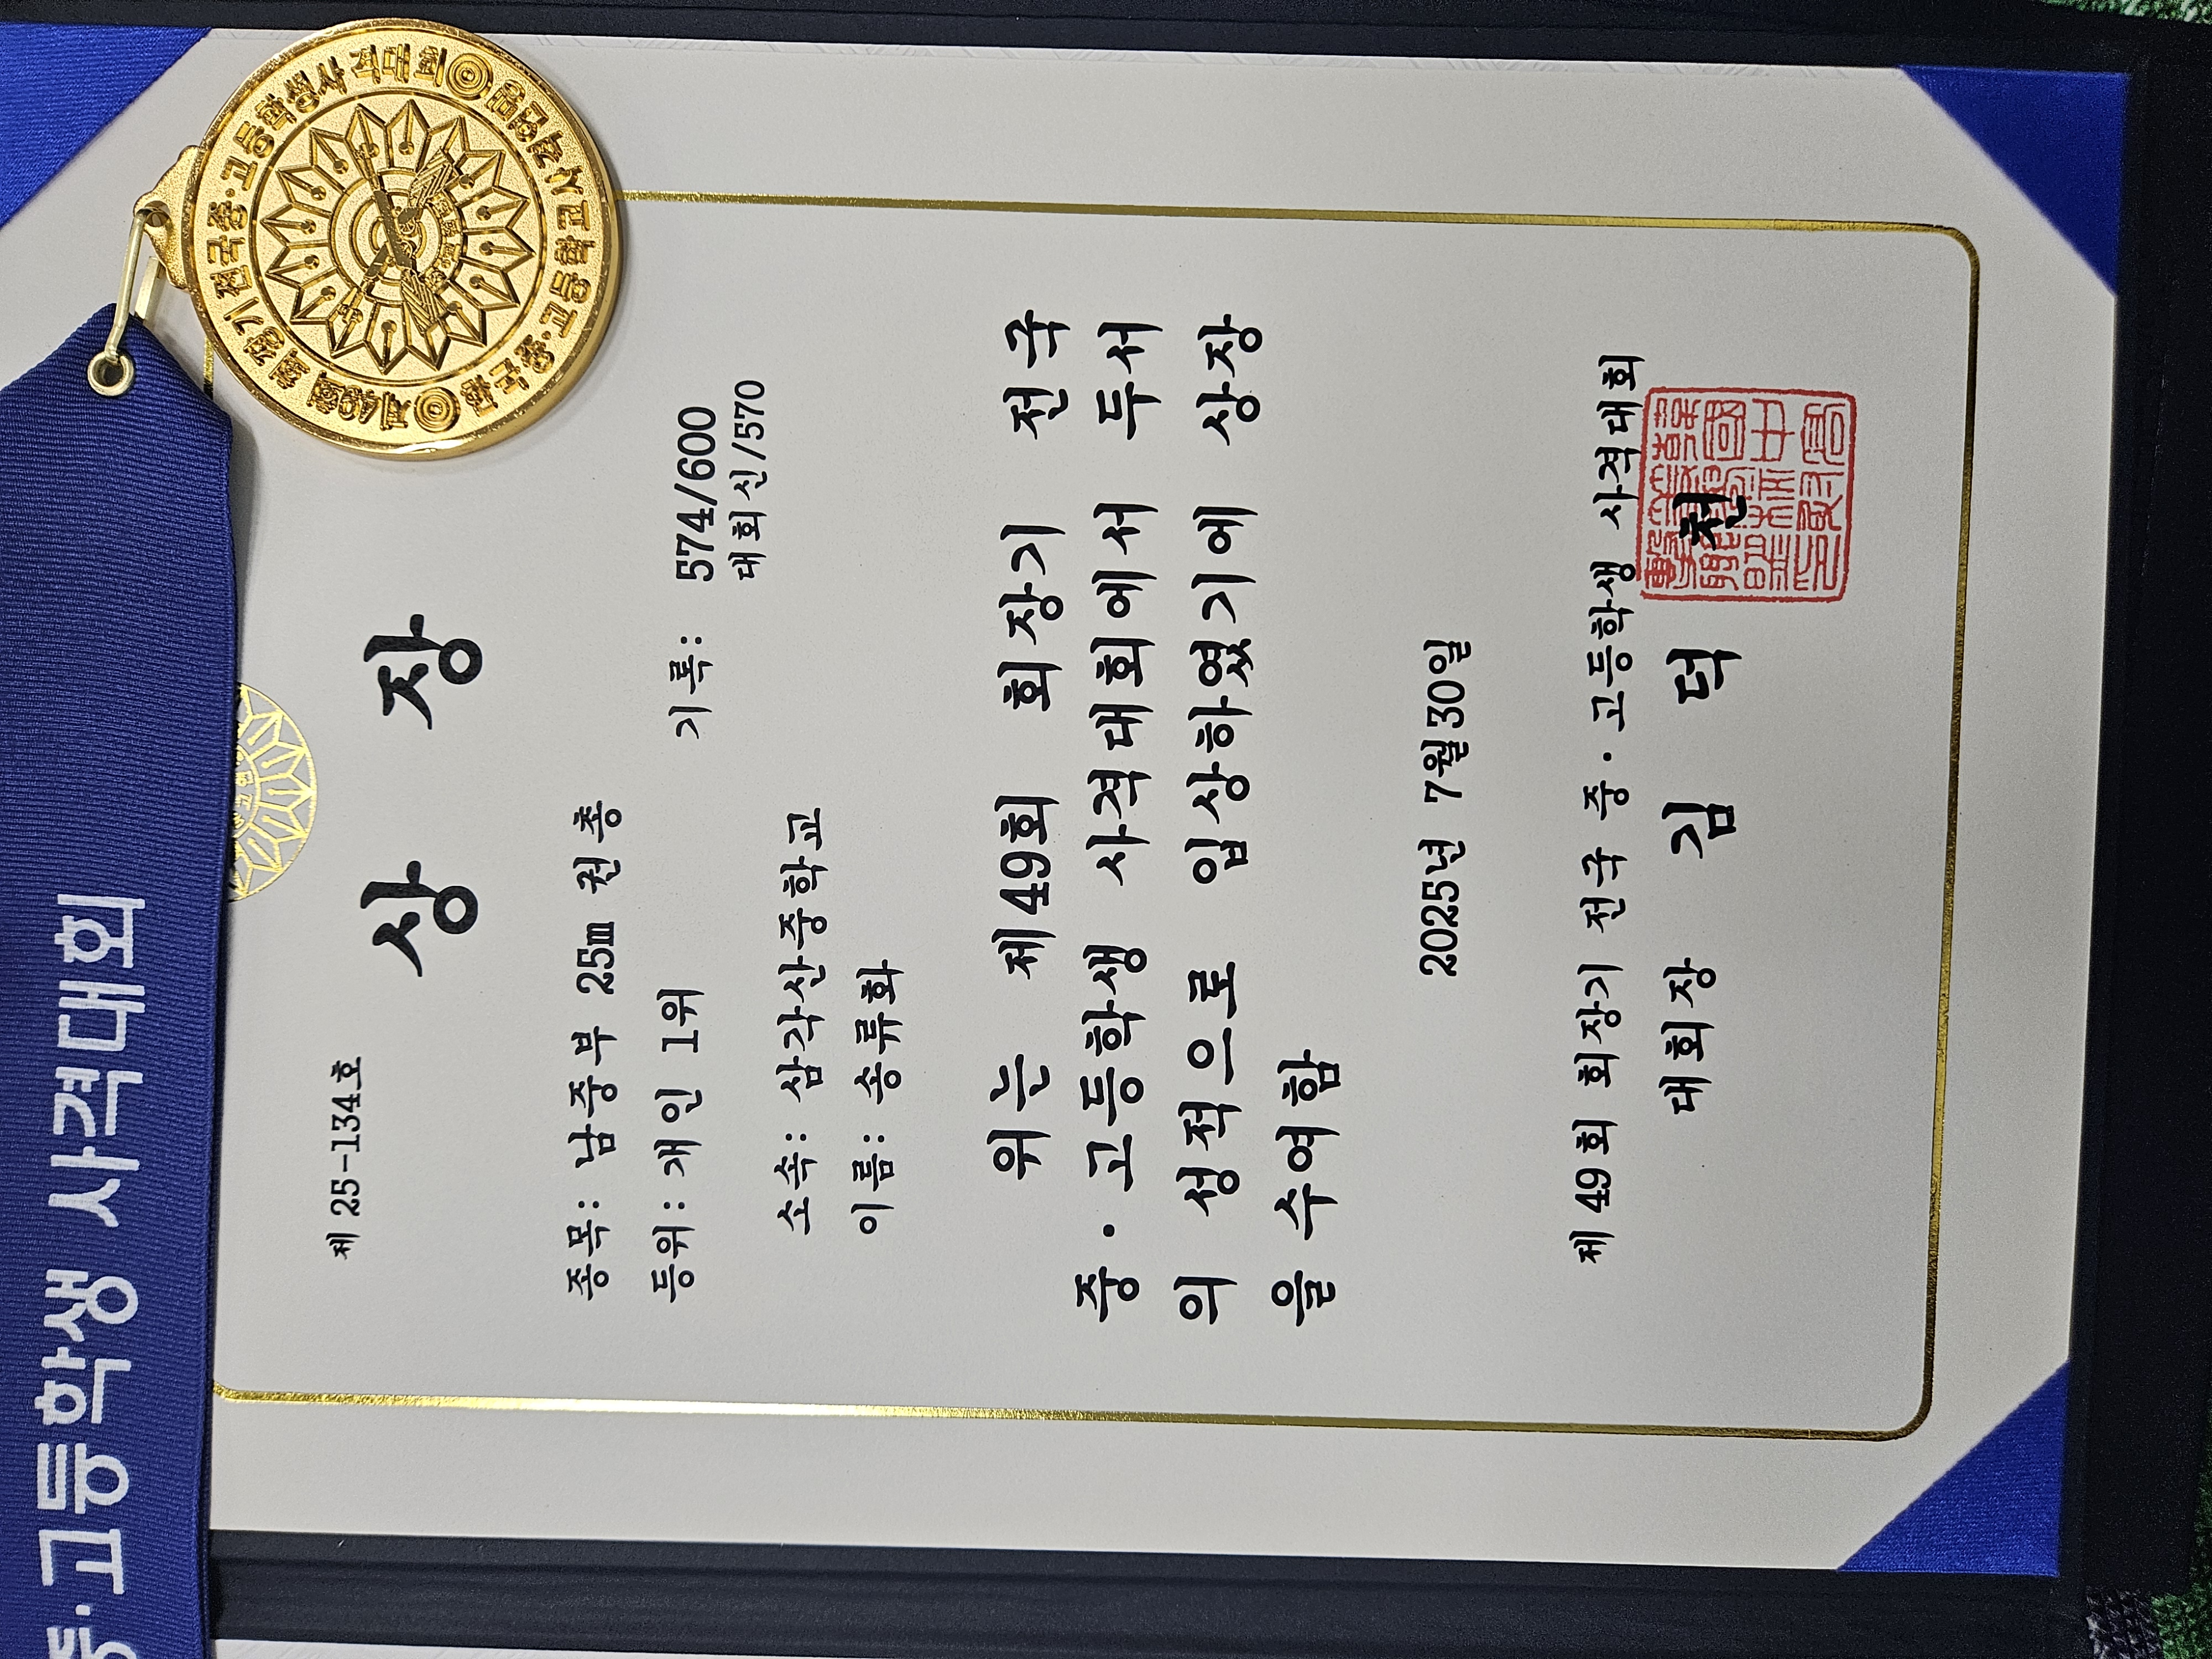 중·고등학생 사격대회
제49회 회장기 전국중·고등학생사격대회
제 25-134호
상 장
종목: 남중부 25m 권총
등위: 개인 1위
기록: 574/600
대회신/570
소속: 삼각산중학교
이름: 송류화
위는 제49회 회장기 전국
중·고등학생 사격대회에서 두서
의 성적으로 입상하였기에 상장
을 수여함
2025년 7월30일
제 49회 회장기 전국 중·고등학생 사격대회
대회장 김 덕 천